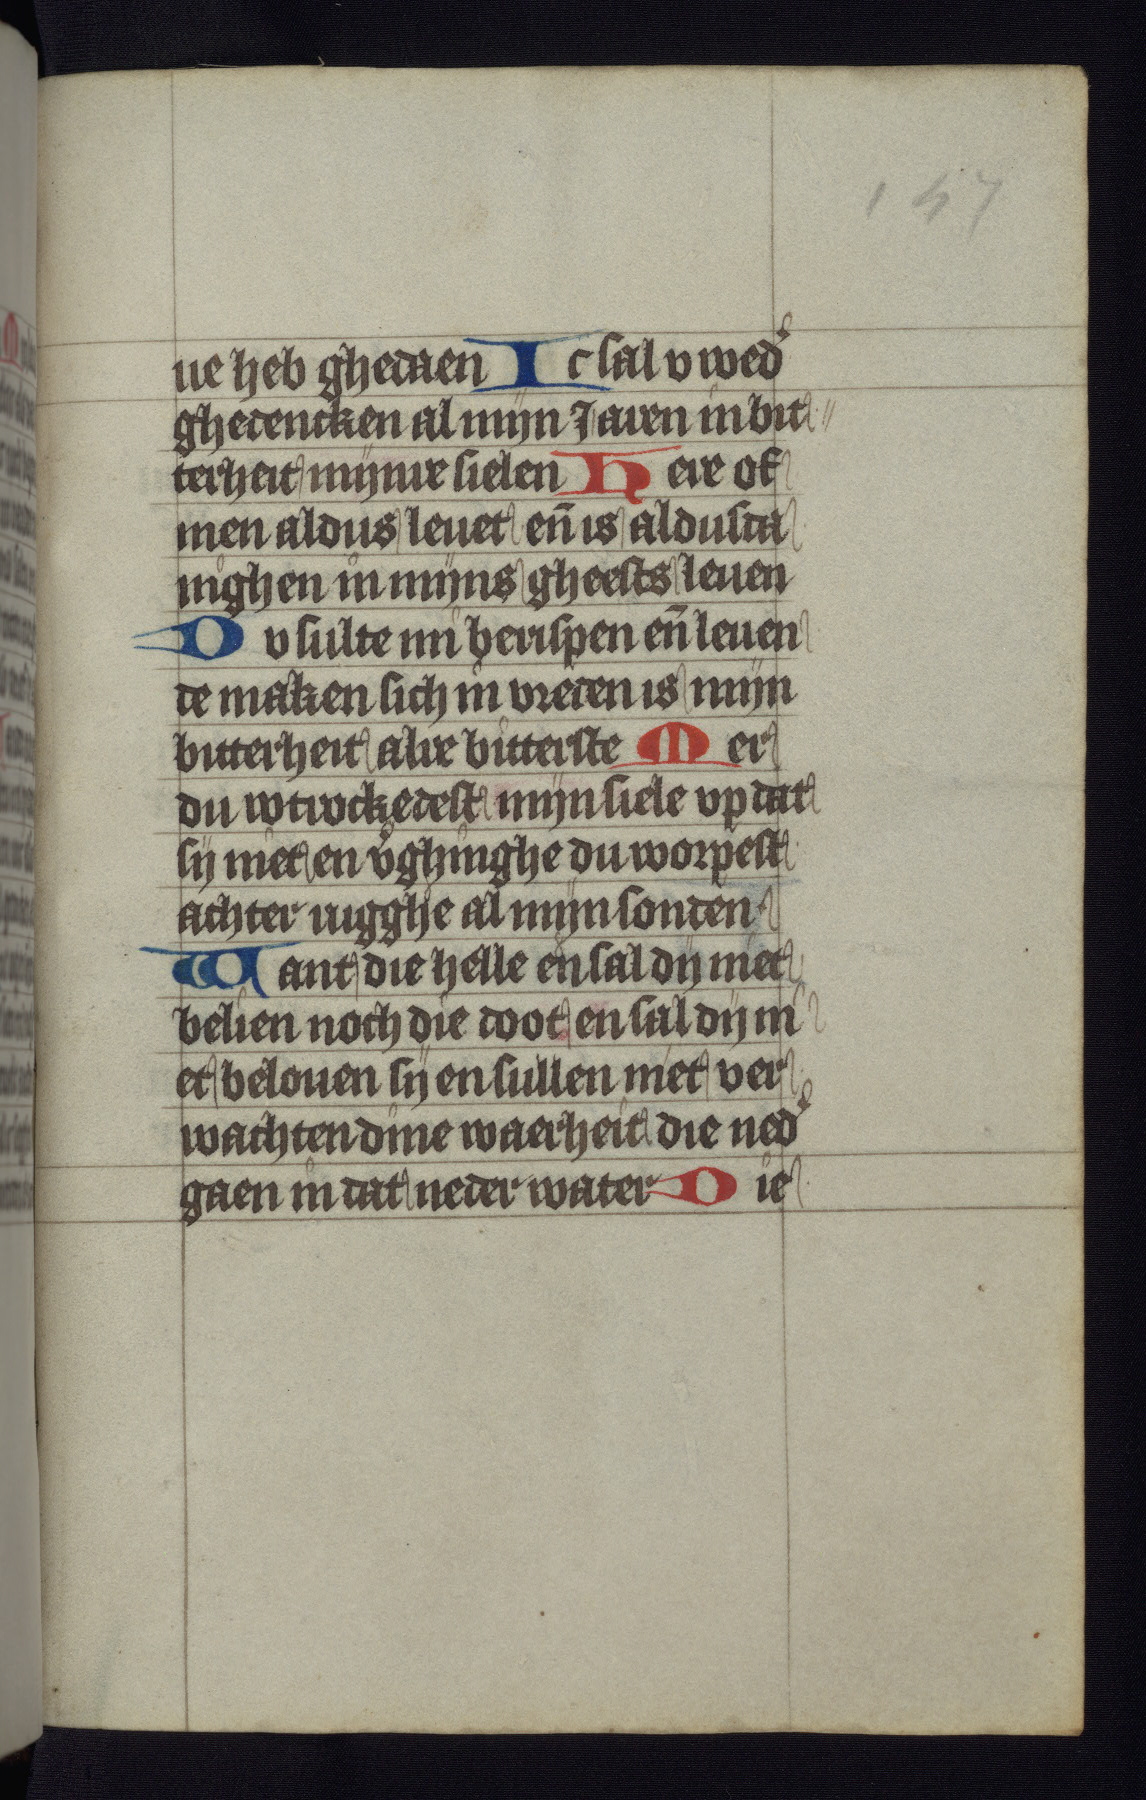 157
ue heb ghedaen Ic sal v wed᷑
ghedencken al mijn Jaren in bit〃
terheit mijnre sielen Here of
men aldus leuet en̄ is aldusda
nighen in mijns gheests leuen
Dv sulte mi berispen en̄ leuen
de maken sich in vreden is mijn
bitterheit alre bitterste Mer
du wtrockedest mijn siele vp dat
sij niet en v᷑ghinghe du worpest
achter rugghe al mijn sonden
Want die helle en sal dij niet
belien noch die doot en sal dij ni
et belouen sij en sullen niet ver
wachten dine waerheit die ned᷑
gaen in dat neder water Die